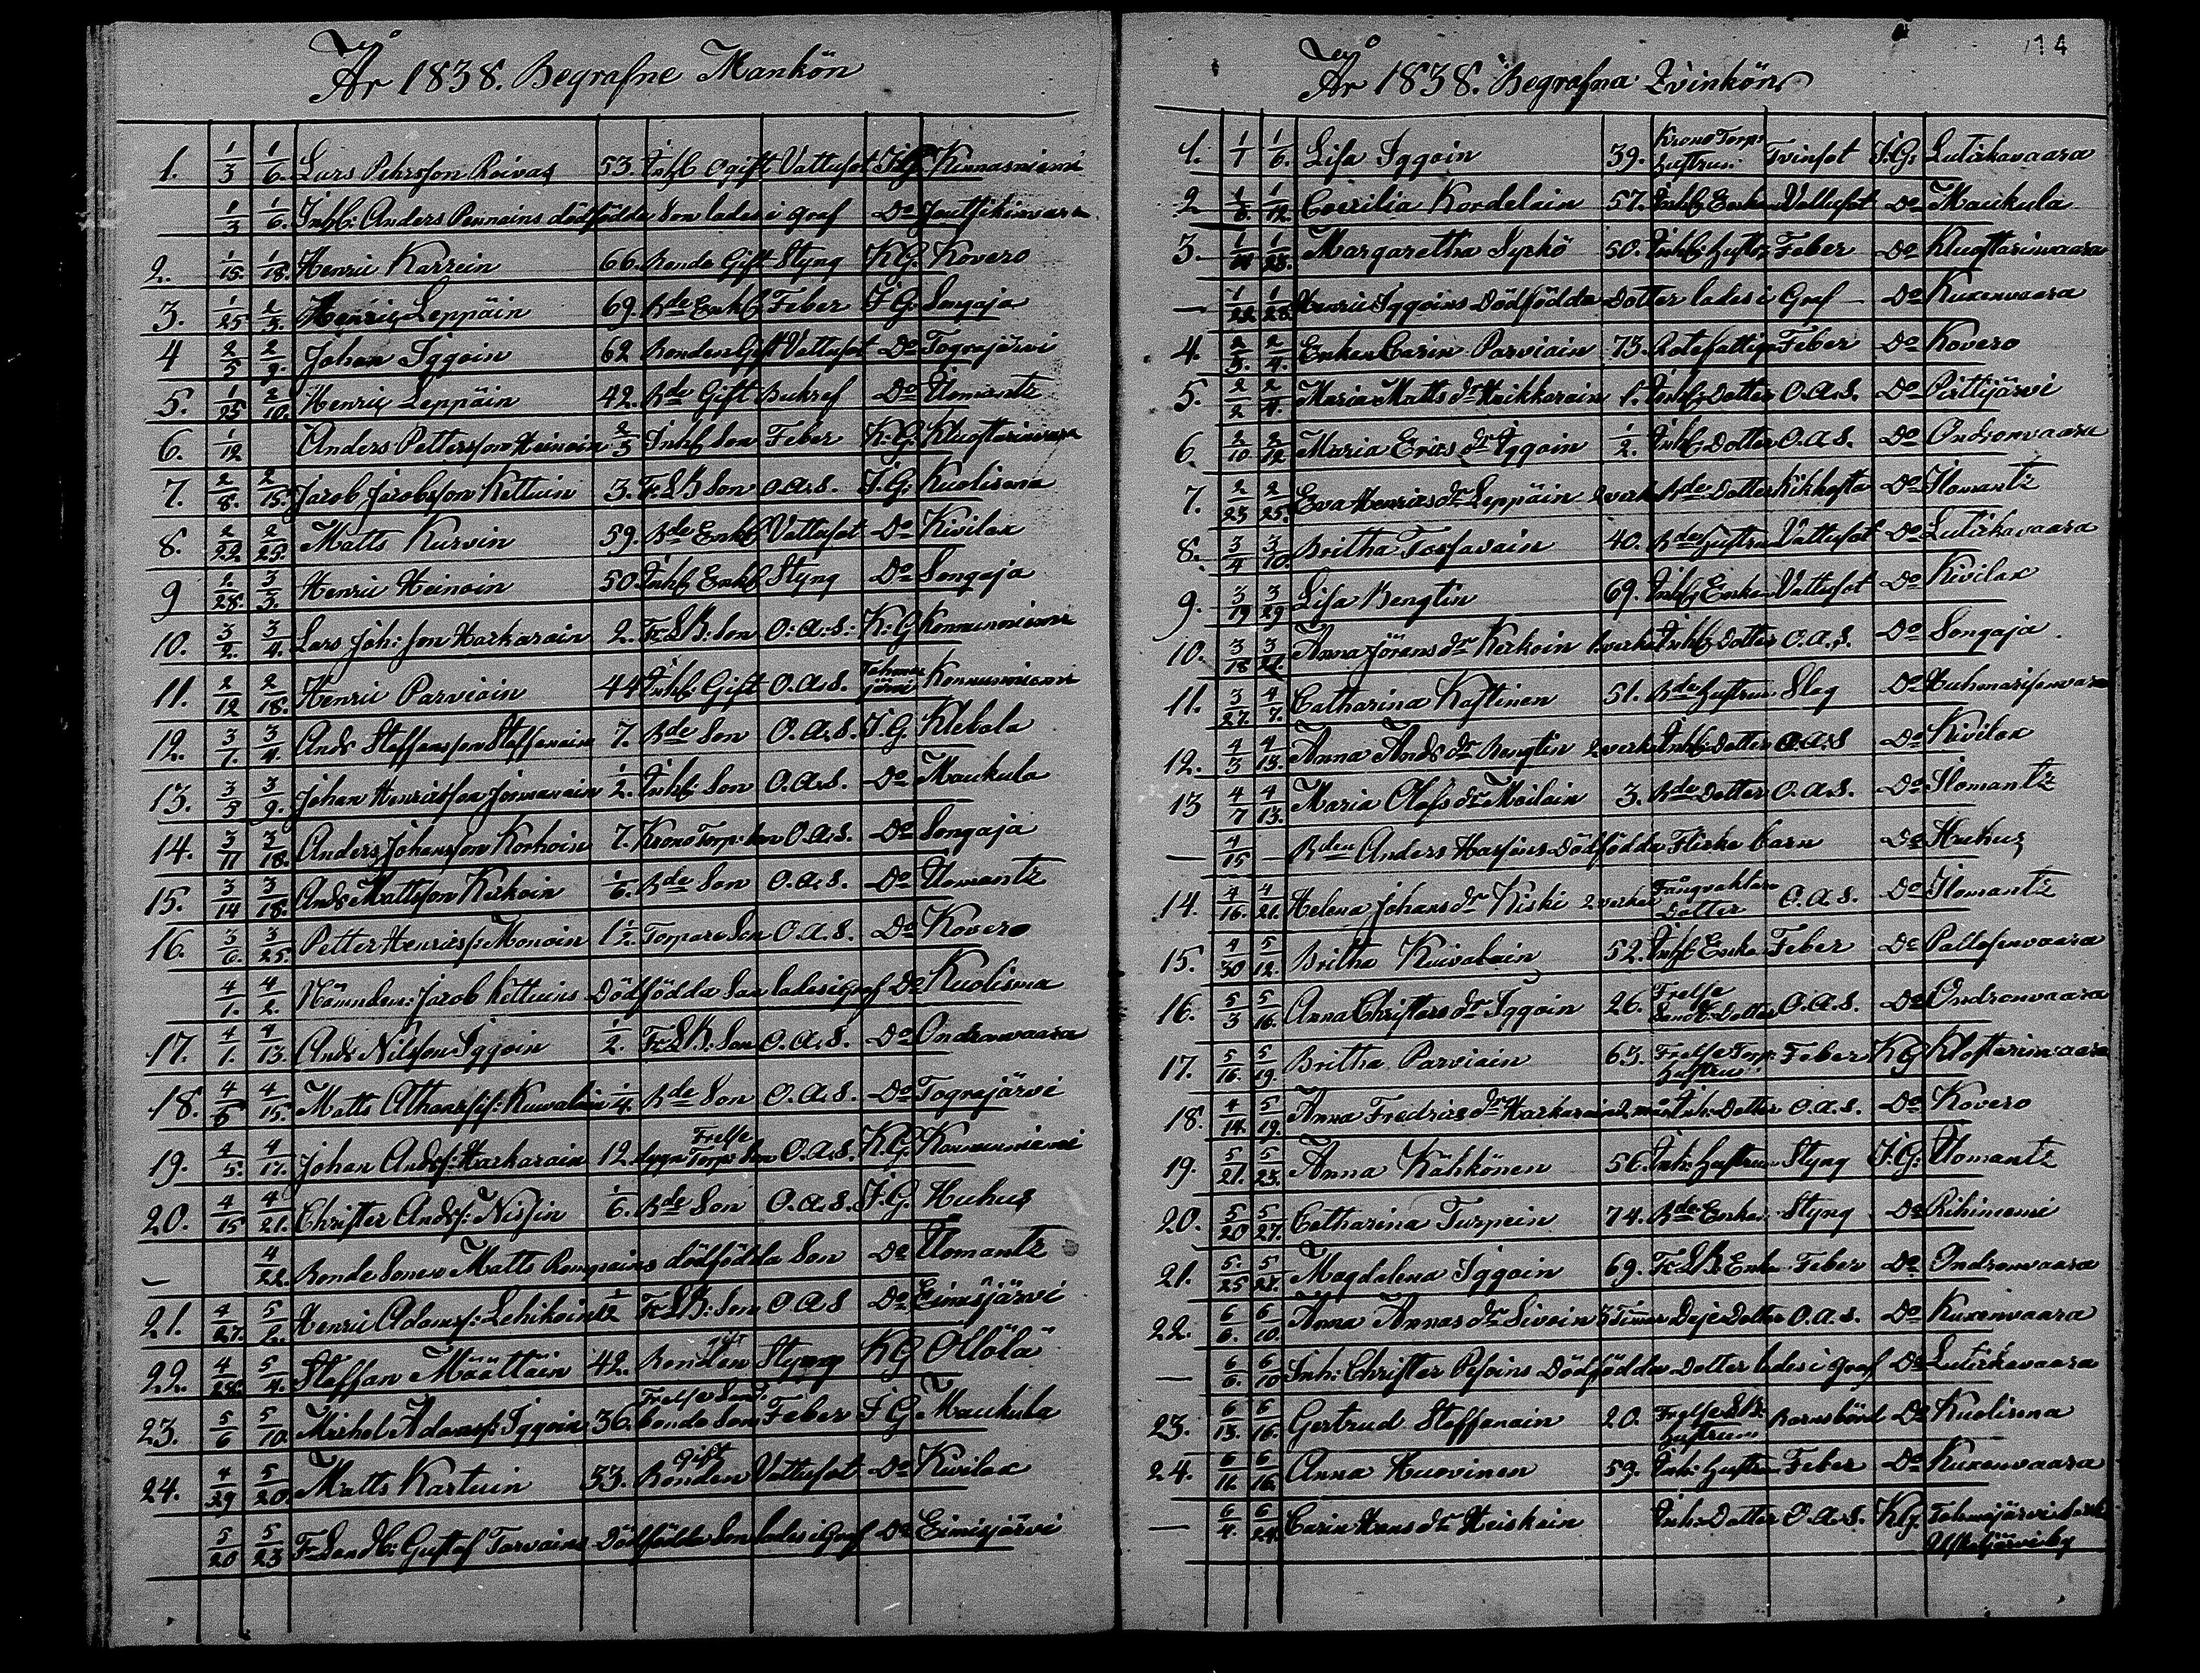 År 1838. Begrafne Mankön
1. 1/3 1/6. Lars Pehrsson Roivas 53. Inhs ogift Vattusot I.G. Kinnasniemi
1/3 1/6. Inhs: Anders Pennains dödfödda Son lades i graf Do
2. 1/15 1/18. Henric Karrein 66. Bonde Gift Styng K.G. Kovero
3. 1/25 2/3. Henric Leppäin 69. Bde Enkl. Feber I.G. Songaja
4 2/5 2/9. Johan Iggoin 62 Bonden Gift Vattusot Do Tograjärvi
5. 1/25 2/10. Henric Leppäin 42. Bde Gift Do Ilomantz
6. 1/12 Anders Pettersson Heinoin 2/3 Inhs Son Feber K.G.
7. 2/8. 2/15. Jacob Jacobsson Kettuin 3. Fr. S B Son O.a.S. I.G. Kuolisma
8. 2/22 2/25. Matts Kurvin 59. Bde Enkl Vattusot Do Kivilax
9 2/28. 3/3. Henric Heinoin 50 Inhs Enkl Styng Do Songaja
10. 3/2. 3/4. Lars Joh: son Harkarain 2. Fr S B: Son O.a.S. K.G Konnunniemi
11. 2/12 2/18. Henric Parviain 44 Inhs: Gift O.a.S. Tohmajärvi Konnunniemi
12. 3/1. 3/4. Ands Staffansson Staffanain 7. Bde Son O.a.S. I.G Klebola
13. 3/5 3/9. Johan Henricsson Jormanain 1/2. Inhs: Son O.a.S. Do Maukula
14. 3/11 3/18. Anders Johansson Korhoin 7. Krono Torp: Son O.a.S. Do Songaja
15. 3/14 3/18. Ands Mattsson Kerkoin 1/6. Bde Son O.a.S. Do Ilomantz
16. 3/6. 3/25. Petter Henricss: Monoin 1 1/2. Torpare Son O.a.S. Do Kovero
4/1. 4/2. Nämndem: Jacob Kettuins Dödfödda Son lades i graf Do Kuolisma
17. 4/1. 4/13. Ands Nilsson Iggoin 1/2. Fr S B: Son O.a.S. Do Ondronvaara
18. 4/5 4/15. Matts Kuivalain 1/4. Bde Son O.a.S. Do Tograjärvi
19. 4/5. 4/17. Johan Andss: Harkarain 12 Frelse Torp: Son O.a.S. K.G. Konnunniemi
20. 4/15 4/21. Christer Andss: Nissin 1/6. Bde Son O.a.S. I.G. Huhus
— 4/22. Bonde Sonen Matts Rompains dödfödda Son Do Ilomantz
21. 4/27. 5/2. Henric Adamss: Lehikoin 1/12 Fr S B: Son O.a.S Do Eimisjärvi
22. 4/28. 5/4. Staffan Määttäin 42. Bonden gift Styng KG Ollola
23. 5/6 5/10. Michel Adamss: Iggoin 36. Frelse Land: bonde Son Feber I G Maukula
24. 4/29 5/20. Matts Kartuin 33. Bonden Gift Vattusot Do Kivilax
5/20 5/23 Fr Landb: Gustaf Tarvains Dödfödda Son lades i Graf Do Eimisjärvi
114
År 1838. Begrafna Qvinkön
1. 1/1 1/6. Lisa Iggoin 39. Krono Torp: hustru: Tvinsot I.G: Lutickavaara
2 1/6. 1/12. Coecilia Kordelain 57. Inhs Enkan Vattusot Do Maukula
3. 1/28. Margaretha Syrkö 50. Inhs: hustru Feber Do
— 1/22. 1/28. Henric Iggoins Dödfödda Dotter lades i Graf — Do Kuxenvaara
4. 2/3. 2/4. Enkan Carin Parviain 73. Rotefattig Feber Do Kovero
5. 2/2 2/4. Maria Matts dr Heikkarain 1. Inhs: Dotter O.a.S. Do Pirttijärvi
6 2/10. 2/12 Maria Erics dr Iggoin 1/2. Inhs: Dotter O.a.S. Do Ondronvaara
7. 2/23 2/25. Eva Henrics dr Leppäin 2 verk Bde Dotter Kikhosta Do Ilomantz
8. 3/4 3/10. Britha Tossavain 40. Bde hustru Vattusot Do Lutickavaara
9. 3/19 3/29 Lisa Bengtin 69. Inhs Enkan Vattusot Do Kivilax
10. 3/18 3/21. Anna Jörans dr Kerkoin 1. verk. Inhs: Dotter O.a.S. Do Songaja
11. 3/27. 4/7. Catharina Kastinen 51. Bde hustru Slag Do
12. 4/3 4/13. Anna Ands dr Bengtin 2 verk Inhs: Dotter O.a.S Do Kivilax
13 4/7 4/13. Maria Olofs dr Moilain 3. Bde Dotter O.a.S. Do Ilomantz
— 4/15 — Bden Anders Hassins Dödfödda Flicke barn Do Huhus
14. 4/16. 4/21. Helena Johans dr Kiski 2. verk Fångvaktare Dotter O.a.S. Do Ilomantz
15. 4/30 5/12. Britha Kuivalain 52. Inhs: Enka Feber Do Pallosenvaara
16. 5/3 5/16. Anna Christers dr Iggoin 26. Frelse Landb: Dotter O.a.S. Do Ondronvaara
17. 5/16. 5/19. Britha Parviain 63. Frelse Torp: hustru Feber KG Klostarinvaara
18. 4/14. 5/19. Anna Fredrics dr Harkarain 2 mån Inh: Dotter O.a.S. Do Kovero
19. 5/21. 5/23. Anna Kähkönen 56. Inh: hustrun Styng I.G: Ilomantz
20. 5/20 5/27. Catharina Turpein 74. Bde Enkan Styng Do Rihiniemi
21. 5/25 5/27. Magdalena Iggoin 69. Fr S B: Enka Feber Do Ondronvaara
22. 6/6. 6/10. Anna Annas dr Sivoin 3 Timar Deje Dotter O.a.S. Do Kuxenvaara
— 6/6. 6/10 Inh: Christer Pesoins Dödfödda Dotter lades i graf Do Lutickavaara
23. 6/13. 6/16. Gertrud Staffanain 20. Frelse L B: hustrun Barnsbörd Do Kuolisma
24. 6/11. 6/16. Anna Huovinen 59. Inh: hustrun Feber Do Kuxenvaara
— 6/4. 6/24. Carin Hans dr Heiskein Inh: Dotter O.a.S. KG. Tohmajärvi
by